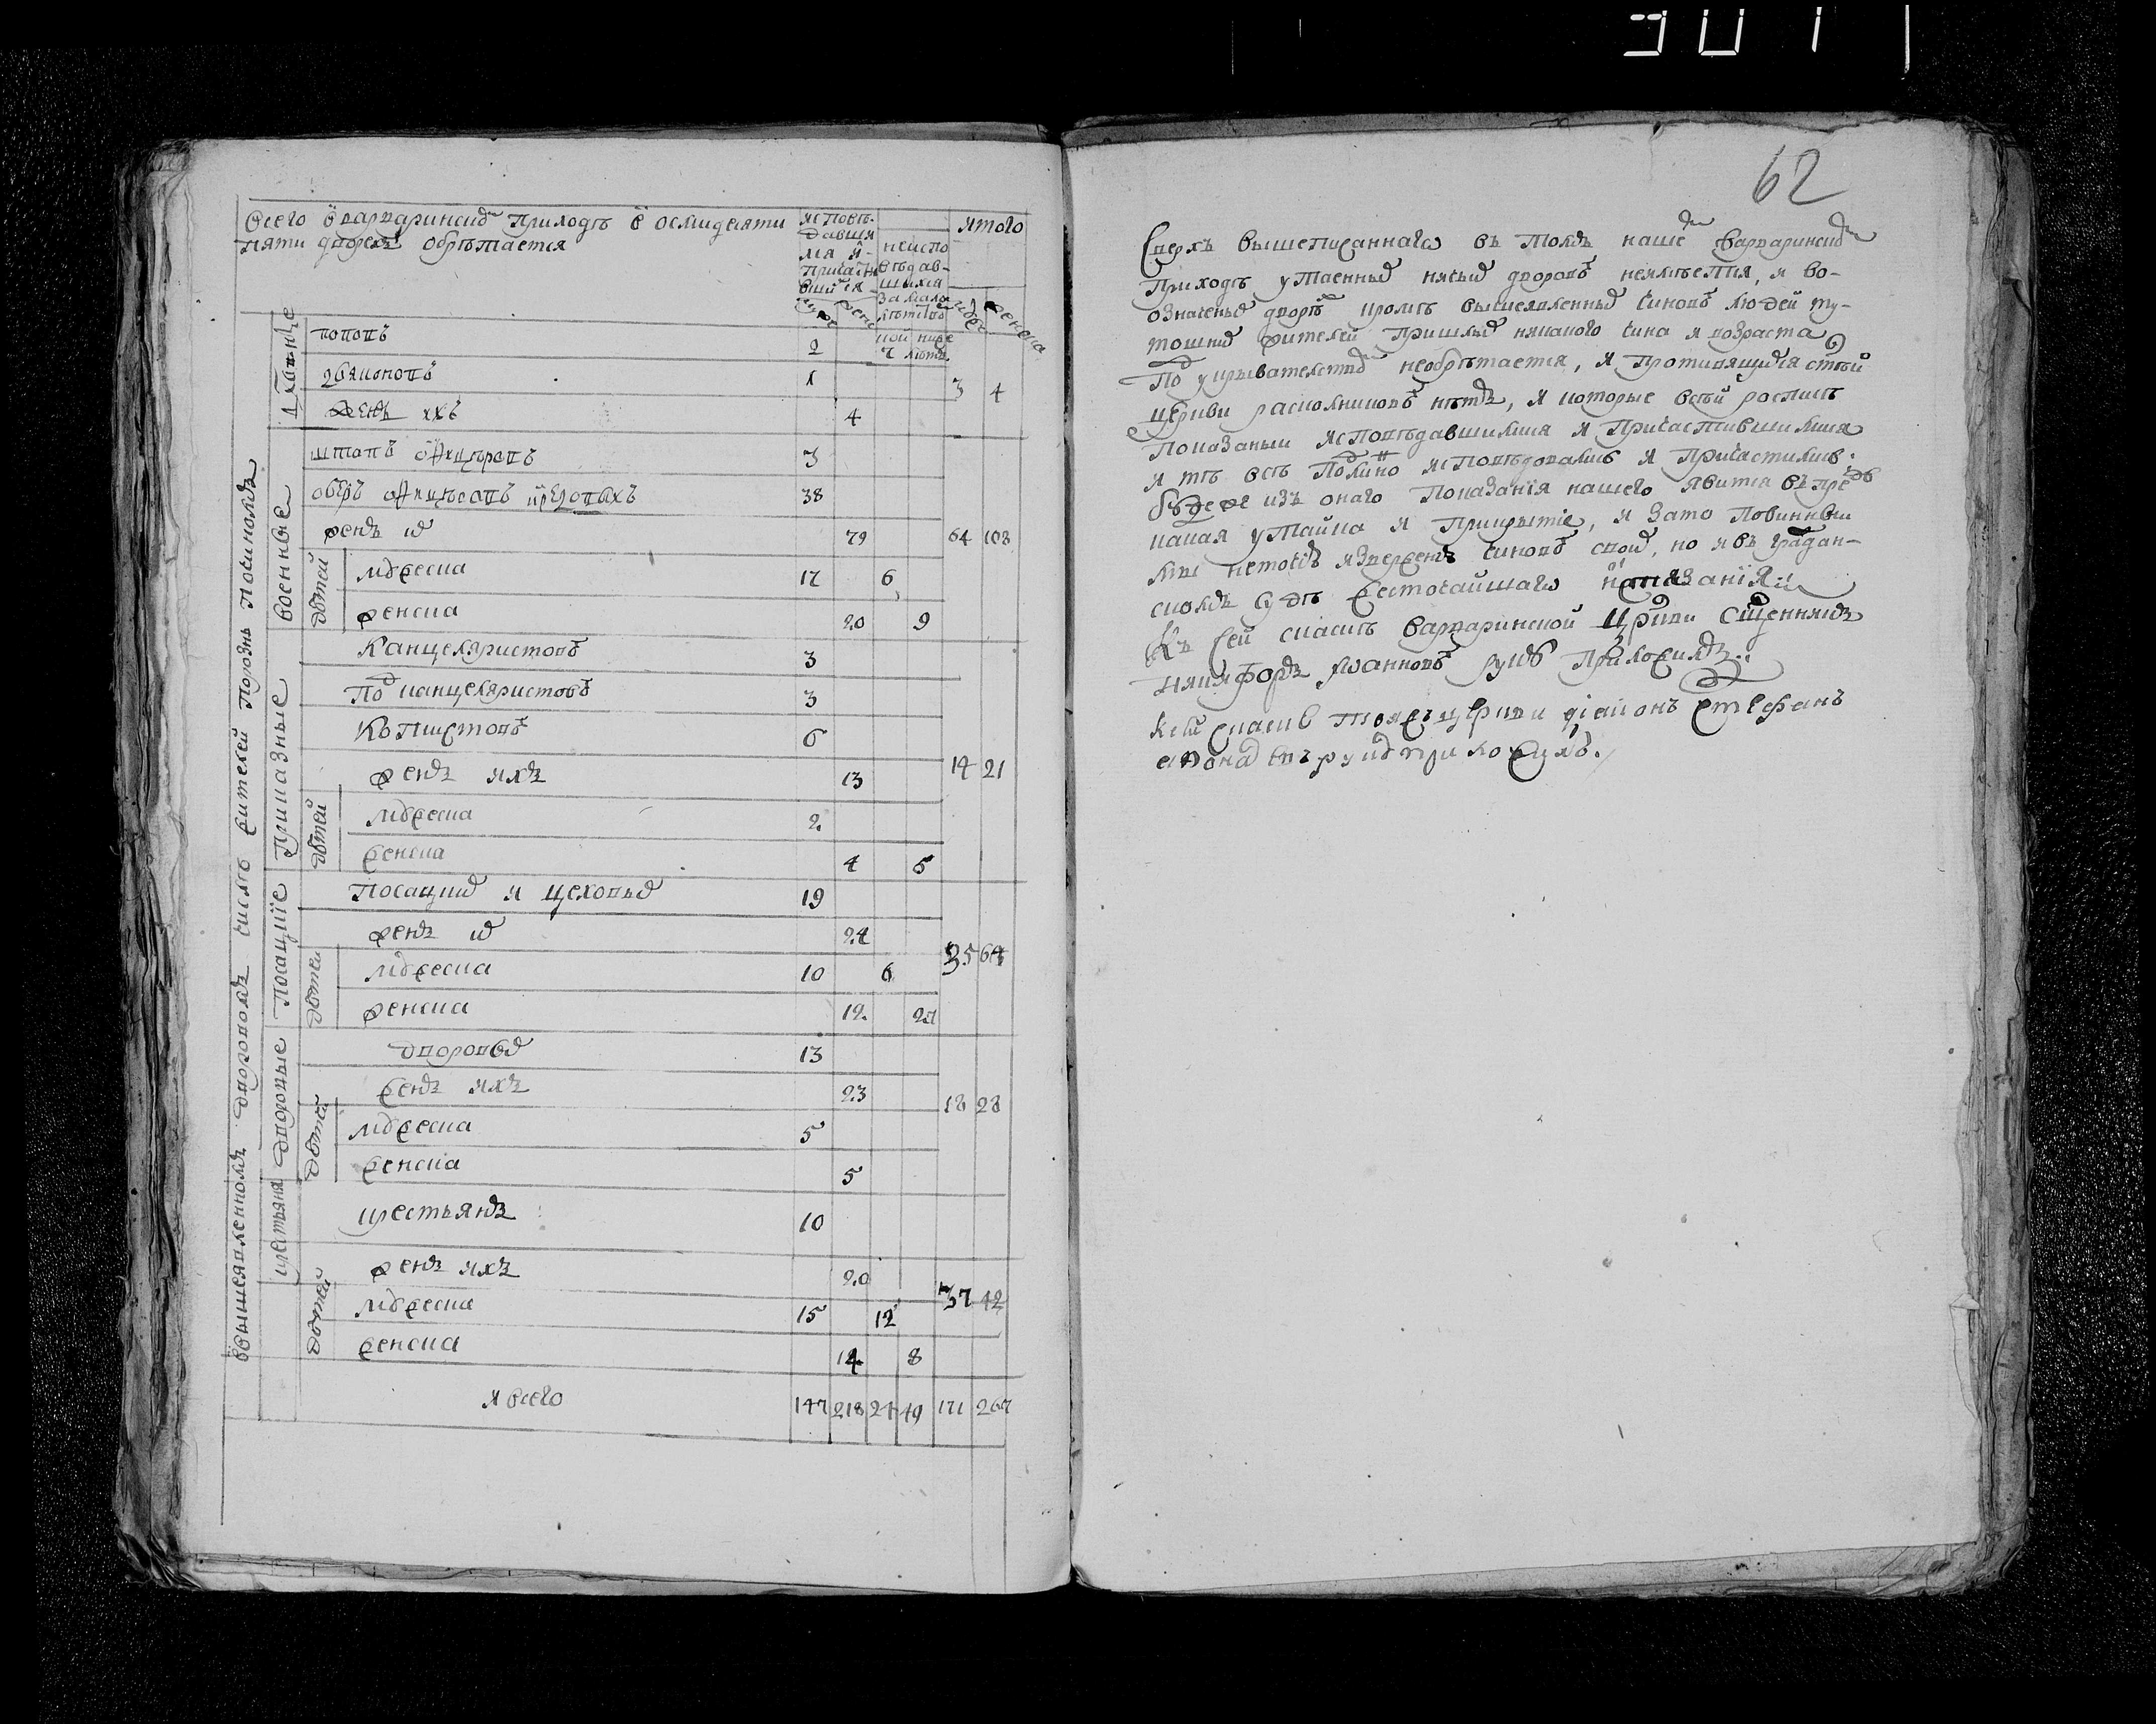 Всего в варваринском приходѣ в осмидесяти
пяти дворех обрѣтается
исповѣ-
давши
мся и
причасти
вшимся
неиспо
вѣдав-
шихся
за мало
лѣтство
итого
муже
женс
муже
женска
ввышеявленном дворовом числѣ жителей порознь по чином
Духовные
попов 2
дьяконов 1
жен их 4
3 4
военные
штап офицеров 3
обер офицеров и рядовых 38
жен их 79
64 108
детей
мужеска 17 6
женска 20 9
Приказные
Канцеляристов 3
Подканцеляристов 3
Копиистов 6
жен их 13
14 21
детей
мужеска 2
женска 4 5
Посацкие
Посацких и цеховых 19
жен их 24
35 64
детей
мужеска 10 6
женска 12 27
дворовые
дворовых 13
жен их 23
18 28
детей
мужеска 5
женска 5
крестьяня
крестьян 10
жен их 20
37 42
детей
мужеска 15 12
женска 14 8
и всего 147 218 24 49 171 267
62
Сверхъ вышеписаннаго въ том нашем варваринском
приходѣ утаенных никаких дворовъ неимѣется, и во-
означеных дворѣх кромѣ вышеявленных чиновъ людей ту-
тошних жителей пришлых никакого чина и возраста
по укрывателству необрѣтается, и противящихся стой
церкви расколниковъ нѣтъ, и которые всей росписѣ
показаны исповѣдавшимися и причастившимися
и тѣ всѣ подлинно исповѣдовались и причастились.
буде же изъ онаго показания нашего явится впредь
какая утайка и прикрытие, и зато повинны
мы неточию извержения чиновъ своих, но и въ граждан-
ском судѣ жесточайшаго наказания
Къ сей скаскѣ варваринской цркви священникъ
никифоръ Иоанновъ руку приложилъ.
Ксей скаске тояжъ цркви дiаконъ Стефанъ
руку приложилъ.